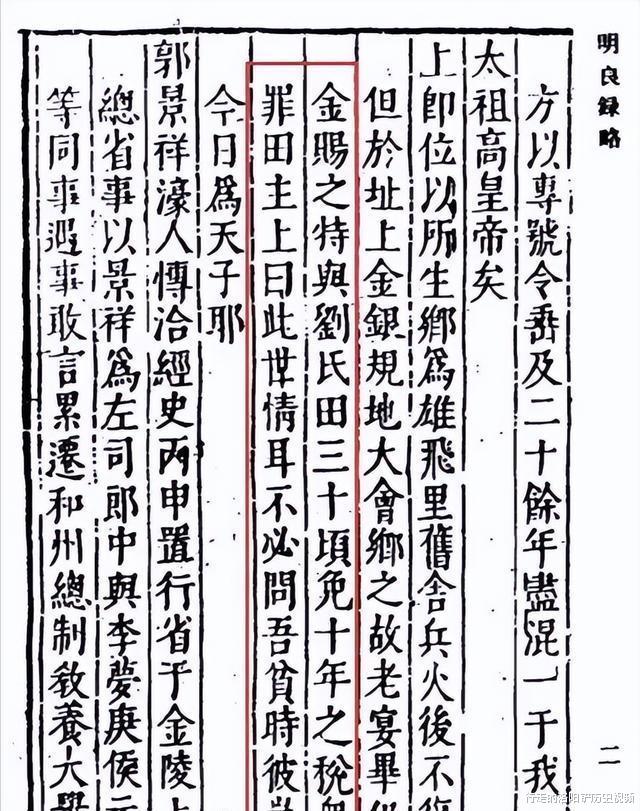 明良録略
二
方以專號令垂及二十餘年盡混一于我
太祖高皇帝矣
上即位以所生鄉爲雄飛里舊舍兵火後不
但於址上金銀規地大會鄉之故老宴畢
金賜之特與劉氏田三十頃免十年之稅
罪田主上曰此世情耳不必問吾貧時彼
今日爲天子耶
郭景祥濠人愽洽經史丙申置行省于金陵上
總省事以景祥爲左司郎中與李夢庚侯元
等同事遇事敢言累遷和州總制敎養大
行走的洛阳铲历史视频